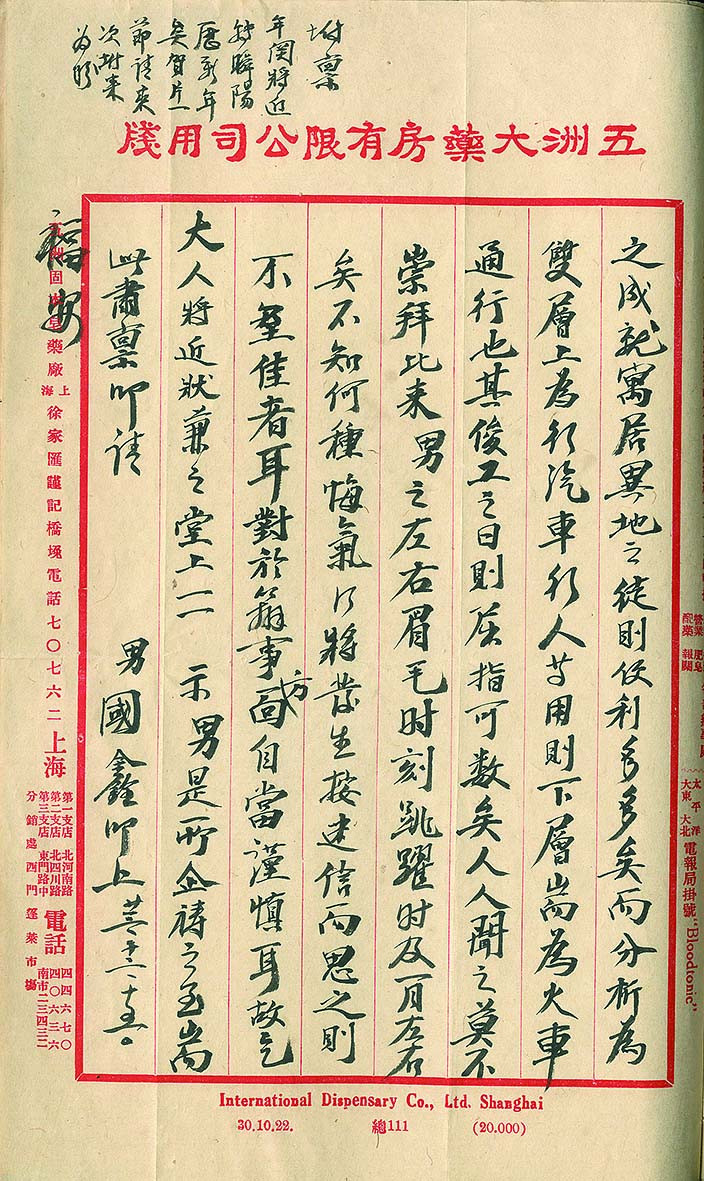 五洲大藥房有限公司用牋
之成就寓居異地之徒則便利多多矣而分析為
雙層上為行汽車行人等用則下層耑為火車
通行也其俊工之日則屈指可數矣人人聞之莫不
崇拜比来 男之左右眉毛时刻跳躍时及一月左右
矣不知何種悔氣行將發生接建信而思之則
不至佳者耳對於簛事方面自當謹慎耳故乞
大人將近狀兼之堂上一一 示男是所企禱之至耑
此肅稟叩请
福安
男國鑫叩上
坿稟
年関將近
轉瞬陽
歷新年
矣賀片一
節请来
次附来
为盼
固本皂藥廠 上海徐家匯謹記橋堍電話七〇七六二
上海
第一支店 北河南路
第二支店 北四川路
第三支店 東門路中
分銷處 西門蓬萊市場
電話
四四六七〇
四〇六三六
南市二三四三二
太平洋
大東 大北
電報局掛號 "Bloodtonic"
International Dispensary Co., Ltd. Shanghai
30.10.22. 總111 (20.000)